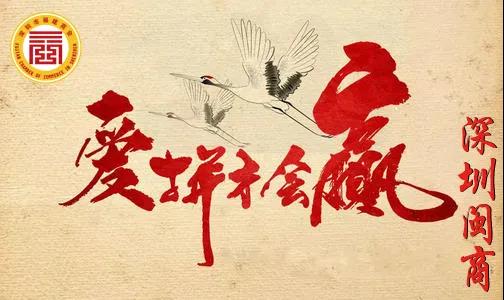 深圳市福建商会
FUJIAN CHAMBER OF COMMERCE IN SHENZHEN
爱拼才会赢
深圳闽商